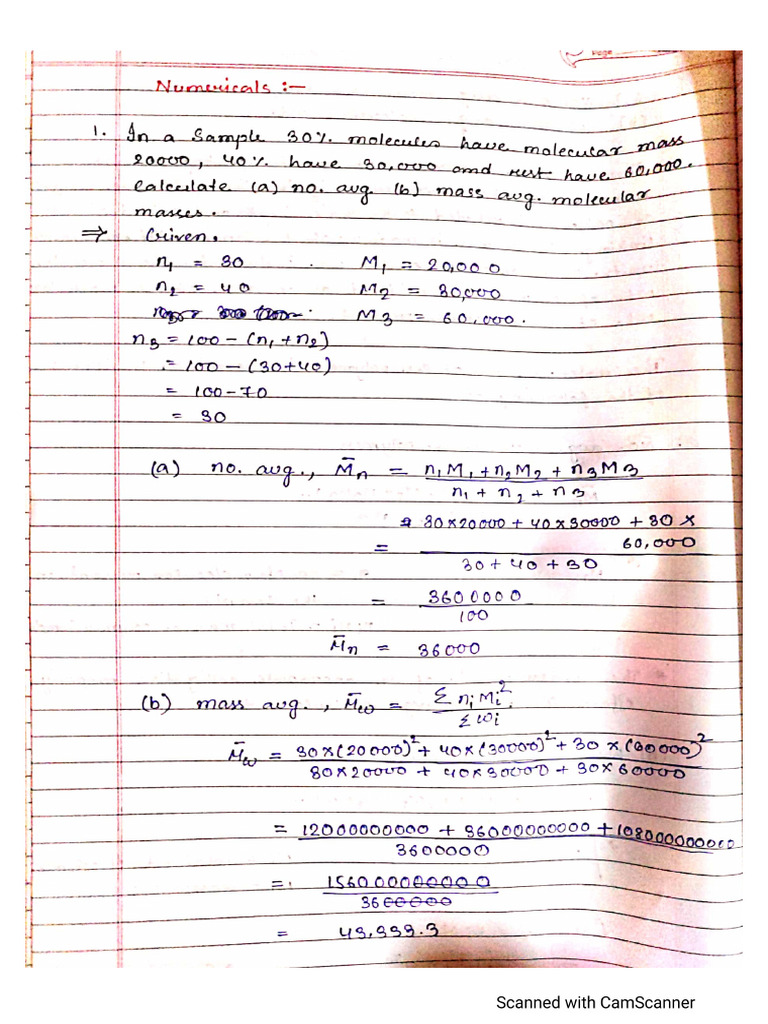 Page
Numericals :-
1. In a sample 30% molecules have molecular mass
20000, 40% have 30,000 and rest have 60,000.
Calculate (a) no. avg. (b) mass avg. molecular
masses.
⇒ Given,
n₁ = 30 M₁ = 20,000
n₂ = 40 M₂ = 30,000
M₃ = 60,000.
n₃ = 100 - (n₁ + n₂)
= 100 - (30+40)
= 100 - 70
= 30
(a) no. avg., M̄n = n₁M₁ + n₂M₂ + n₃M₃
n₁ + n₂ + n₃
30×20000 + 40×30000 + 30 ×
= 60,000
30 + 40 + 30
= 3600000
100
M̄n = 36000
(b) mass avg., M̄w = Σ nᵢMᵢ²
Σ wᵢ
M̄w = 30×(20000)² + 40×(30000)² + 30 ×(60000)²
30×20000 + 40×30000 + 30×60000
= 12000000000 + 36000000000 + 108000000000
3600000
= 156000000000
3600000
= 43,333.3
Scanned with CamScanner